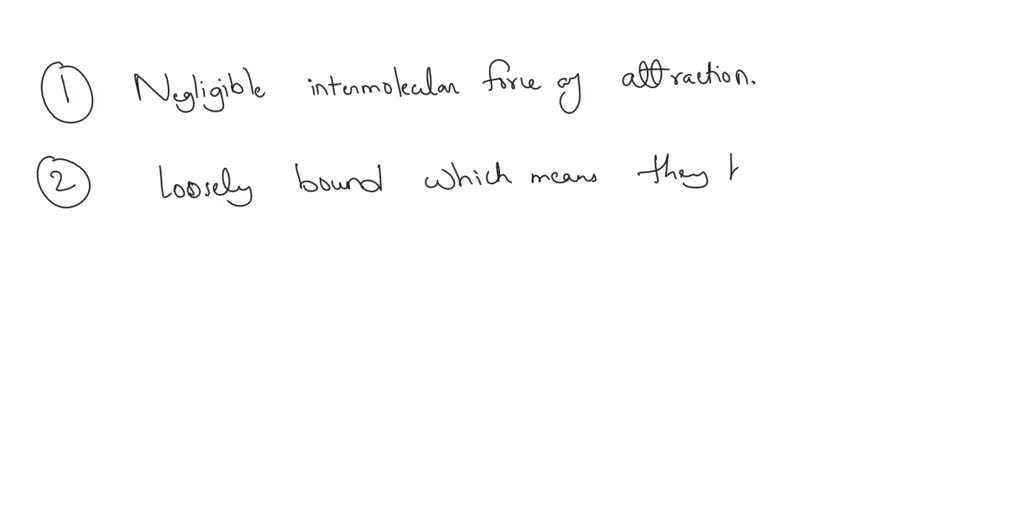 1 Negligible intermolecular force of attraction.
2 Loosely bound which means they